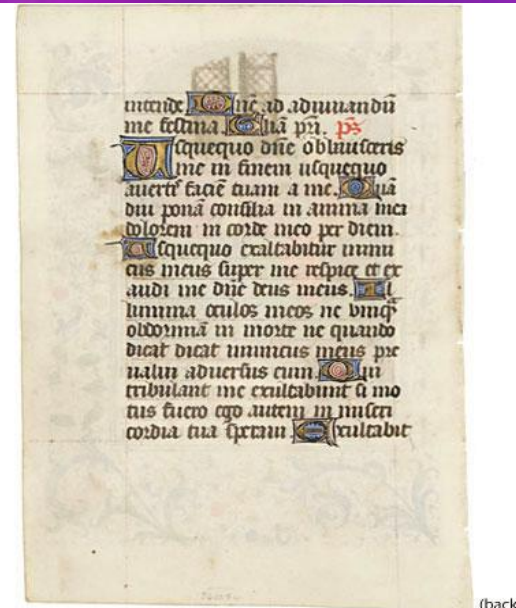 intende Dne ad adiuvandu
me festina. Glia pri. ps
Usquequo dne oblivisceris
me in finem usquequo
avertis facie tuam a me. Qua
diu pona consilia in anima mea
dolorem in corde meo per diem.
Usquequo exaltabitur inimi
cus meus super me respice et ex
audi me dne deus meus. Il
lumina oculos meos ne unq
obdormia in morte ne quando
dicat dicat inimicus meus pre
valui adversus eum. Qui
tribulant me exultabunt si mo
tus fuero ego autem in miseri
cordia tua speravi. Exultabit
(back